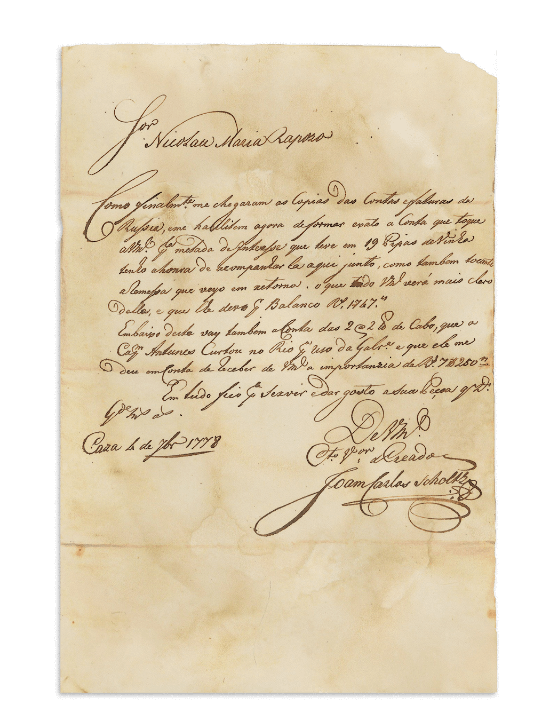 Sor Nicolau Maria Rapozo
Como finalmte. me chegaram as Copias das Contas e faturas de
Russia, e me habilitem agora de formar exato a Conta que toque
a VMce. pa metade de Interesse que teve em 19 Pipas de Vinho
tenho a honra de acompanhar la aqui junto, como tambem tocante
a Remessa que veyo em retorno, o que tudo VMce verá mais claro
della, e que lhe devo pr Balanço Rs. 1747.
Embaixo desta vay tambem a Conta das 2 de Cabo, que a
Capm Antunes Curton no Rio pa uso da e que elle me
deu em Conta de receber de VMce a importanzia de Rs. 7250
Em tudo fico pa servir e dar gosto a sua Pessoa q Ds.
Gde ms as.
Caza 4 de 7br 1778
De VMce
Mto Vor e Creado
Joam Carlos Scholtz